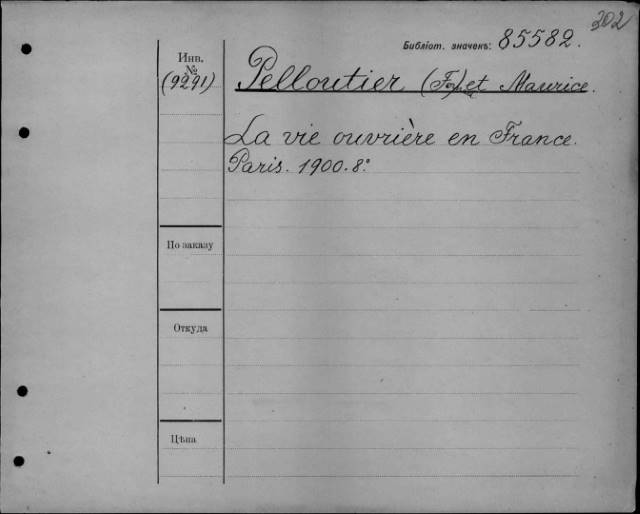 302
Библіот. значекъ: 85582.
Инв.
№
(9291)
Pelloutier (F.) et Maurice.
La vie ouvrière en France.
Paris. 1900. 8°.
По заказу
Откуда
Цѣна